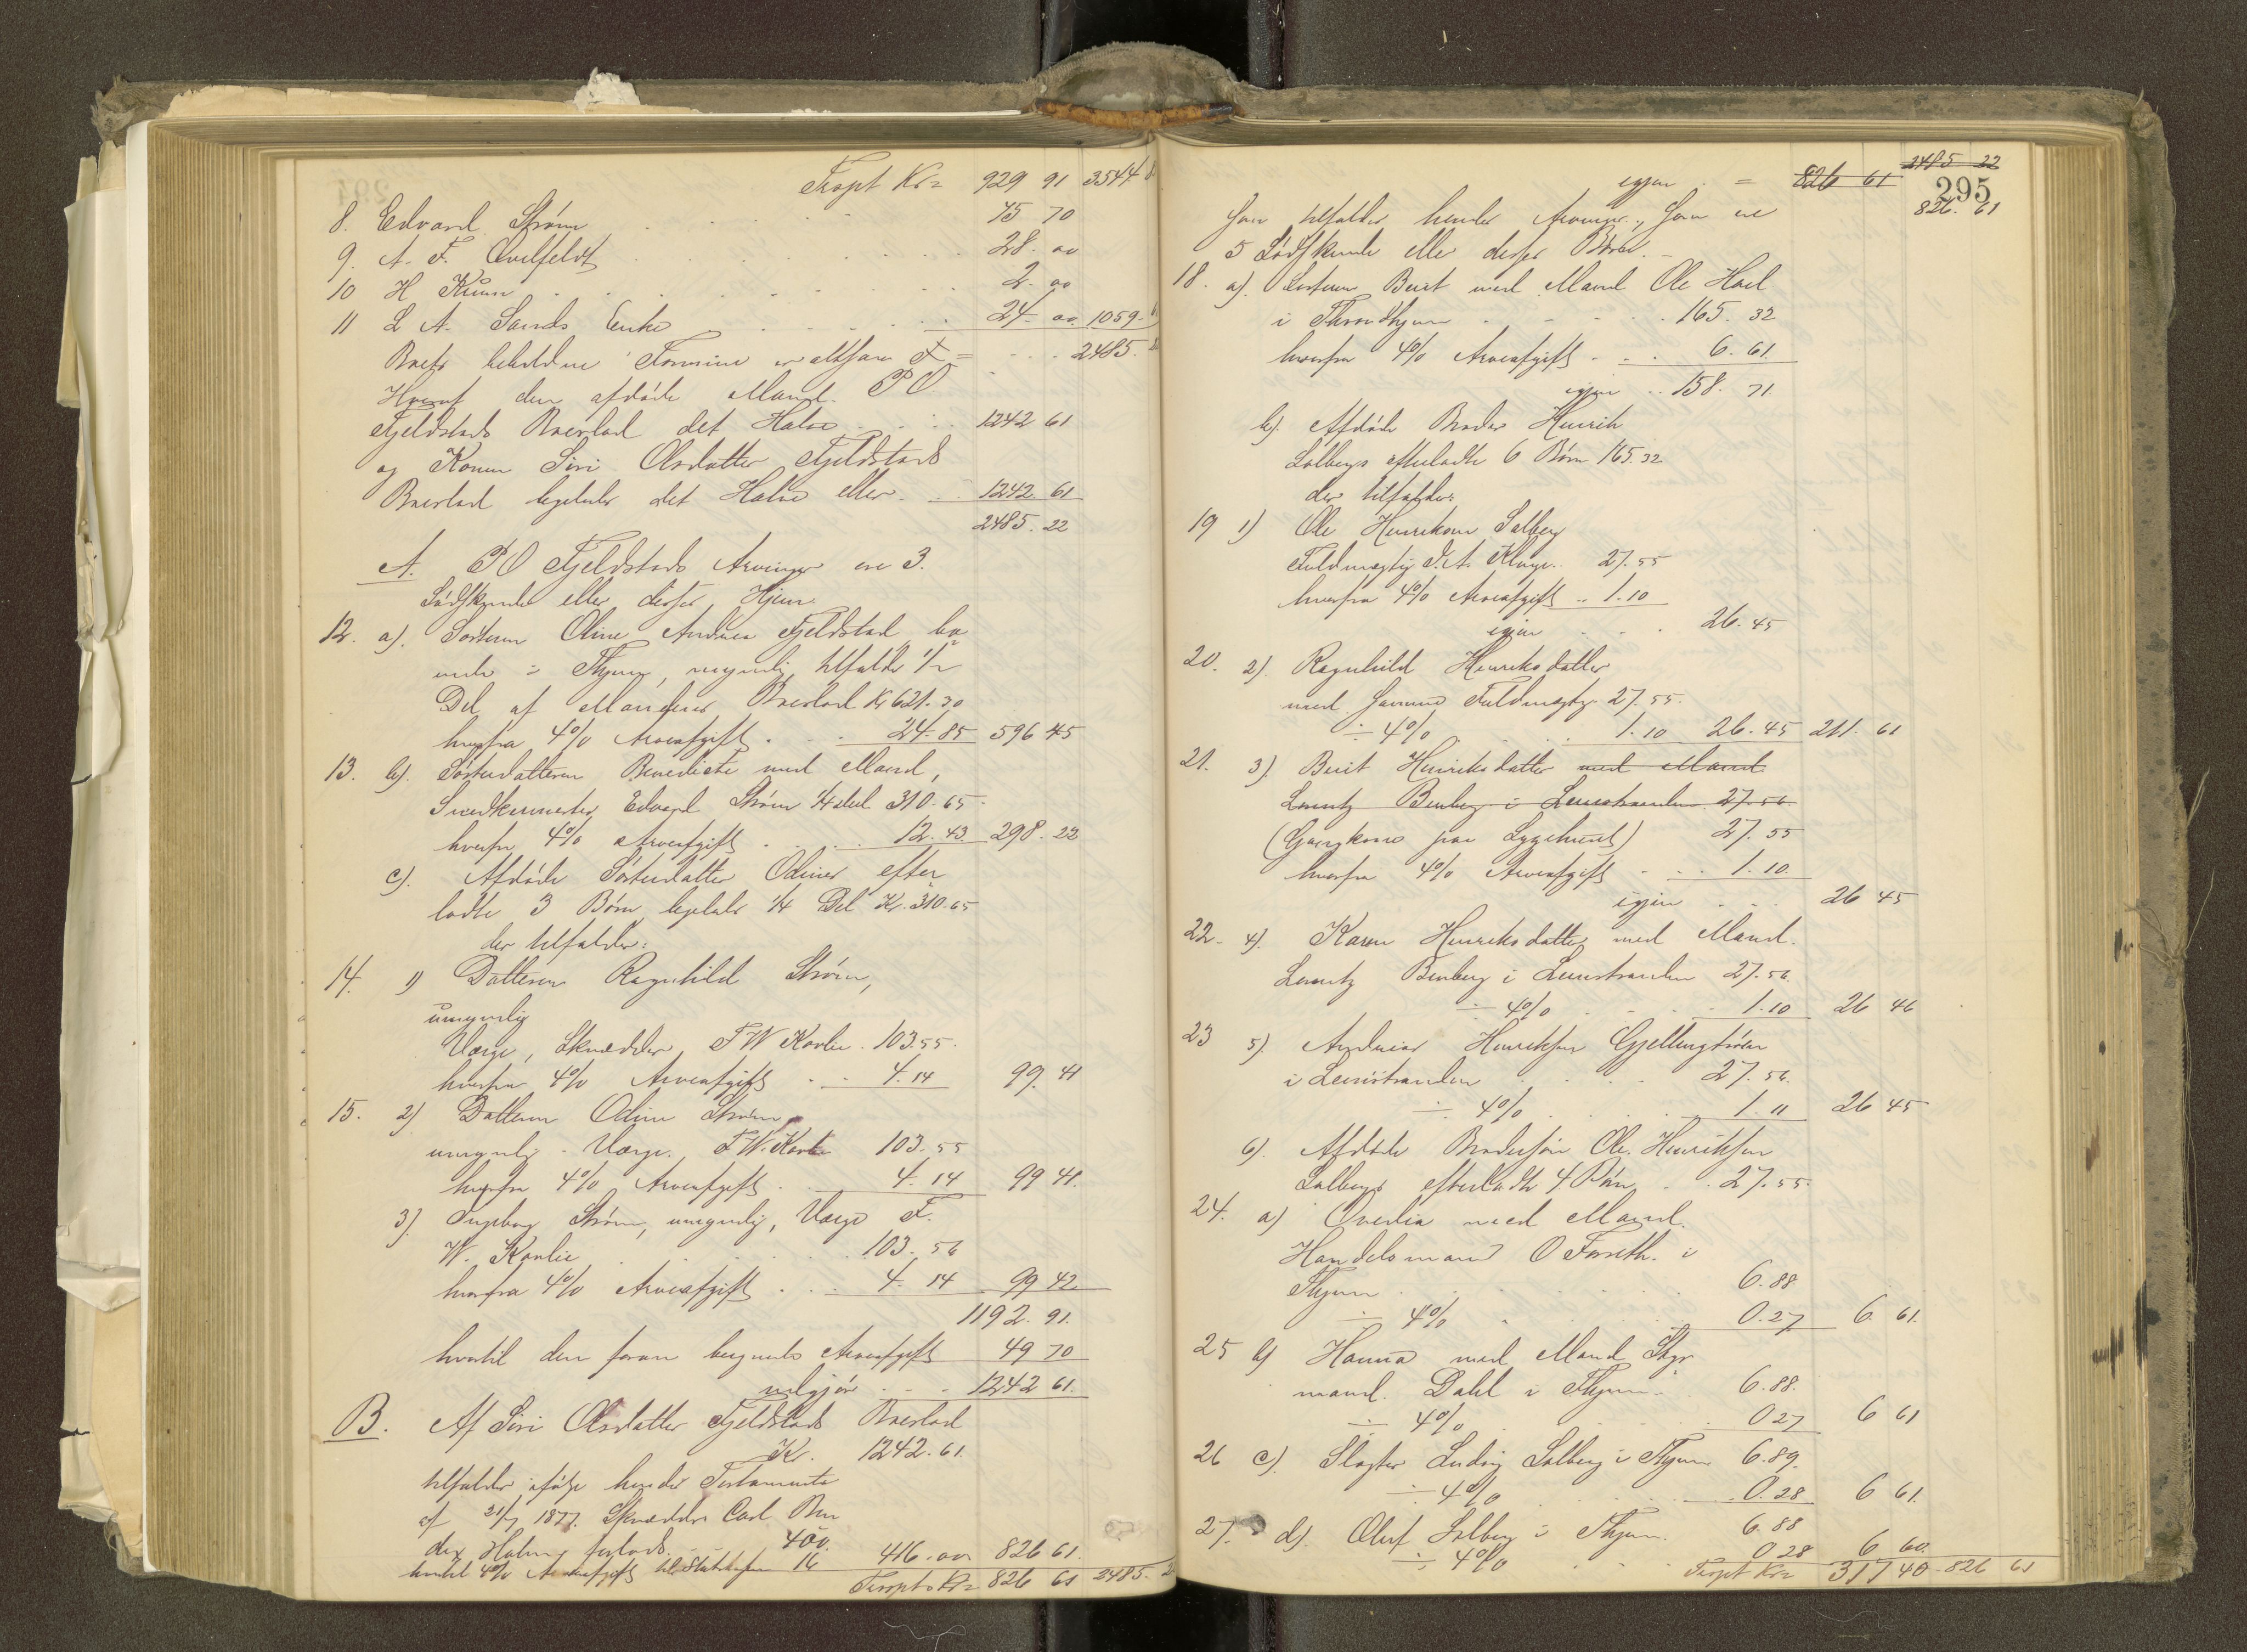 Tropt Kr= 929 91 3544
8. Edvard Strøm 45 70
9. A. F. Qvelfeldt 28. 00
10 H 2. 00
11 L A. Sands Enke 24. 00. 1059.
Boets beholdne Formue altsaa 2485.
Hvoraf den afdøde Mand. P O.
Fjeldstads Boeslod det Halve 1242 61
og Konen Siri Olsdatter Fjeldstads
Boeslod ligeledes det Halve eller 1242. 61
2485. 22
A. P O Fjeldstads Arvinger ere 3.
Sødskende eller disses Hjem.
12. a). Søsteren Oline Andrea Fjeldstad bo
ende i Thjem, myndig tilfalder 1/2
Del af Mandens Boeslod Kr 621. 30
hvorfra 4% Arveafgift 24. 85 596 45
13. b). Søsterdatteren Benedicte med Mand,
Snedkermester Edvard Strøm 1/4 deel 310. 65.
hvorfra 4% Arveafgift 12. 43. 298. 22
c). Afdøde Søsterdatter Odines efter
ladte 3 Børn ligeledes 1/4 Del Kr. 310. 65
der tilfalder:
14. 1) Datteren Ragnhild Strøm,
umyndig
Værge, Skrædder F W Kavlie. 103. 55.
hvorfra 4% Arveafgift 4. 14 99. 41
15. 2) Datteren Odine Strøm
umyndig. Værge. F W. Kavlie 103. 55
hvorfra 4% Arveafgift 4. 14 99 41.
3). Ingeborg Strøm, umyndig, Værge F.
W. Kavlie 103. 56
hvorfra 4% Arveafgift 4. 14 99 42.
1192. 91.
hvortil den foran beregnede Arveafgift 49 70
udgjør 1242 61.
B. Af Siri Olsdatter Fjeldstads Boeslod
Kr. 1242. 61.
tilfalder ifølge hendes Testamente
af 21/7 1877. Skrædder Carl Ben
dix Holm forlods. 400.
hvortil 4% Arveafgift til Statskassen 16 416. 00 826 61.
Tropt Kr= 826 61 2485. 2
igjen = 826 61 2485 22
295
826. 61
som tilfalder hendes Arvinger, som ere
5 Sødskende eller disses Børn.
18. a). Søsteren Berit med Mand Ole Hoel
i Throndhjem 165. 32
hvorfra 4% Arveafgift 6. 61.
igjen 158. 71
b). Afdøde Broder Henrik
Solbergs efterladte 6 Børn 165. 32
der tilfalder:
19 1) Ole Henriksen Solberg
Fuldmægtig I. A. Kluge. 27. 55
hvorfra 4% Arveafgift 1. 10
igjen 26. 45
20. 2). Ragnhild Henriksdatter
med samme Fuldmægtig 27. 55.
÷ 4% 1. 10 26. 45 211. 61
21. 3). Berit Henriksdatter med Mand
Lorentz Benberg i Leinstranden 27. 56
(Gaardkone paa ) 27. 55
hvorfra 4% Arveafgift 1. 10.
igjen 26 45
22. 4). Karen Henriksdatter med Mand.
Lorentz Benberg i Leinstranden 27. 56.
÷ 4% 1. 10 26 46
23 5). Andreas Henriksen
i Leinstranden 27. 56.
÷ 4% 1. 11 26 45
6). Afdøde Brodersøn Ole Henriksen
Solbergs efterladte 4 Børn 27. 55.
24. a) Ovedia med Mand.
Handelsmand O Forseth. i
Thjem 6. 88
÷ 4% 0. 27 6. 61.
25 b) Hanna med Mand Styr
mand. Dahl i Thjem. 6. 88.
÷ 4% 0 27 6 61
26 c). Slagter Ludvig Solberg i Thjem 6. 89.
÷ 4% 0. 28 6 61.
27. d). Oluf Solberg i Thjem. 6. 88
÷ 4% 0 28 6 60.
Tropt Kr= 317 40 826 61